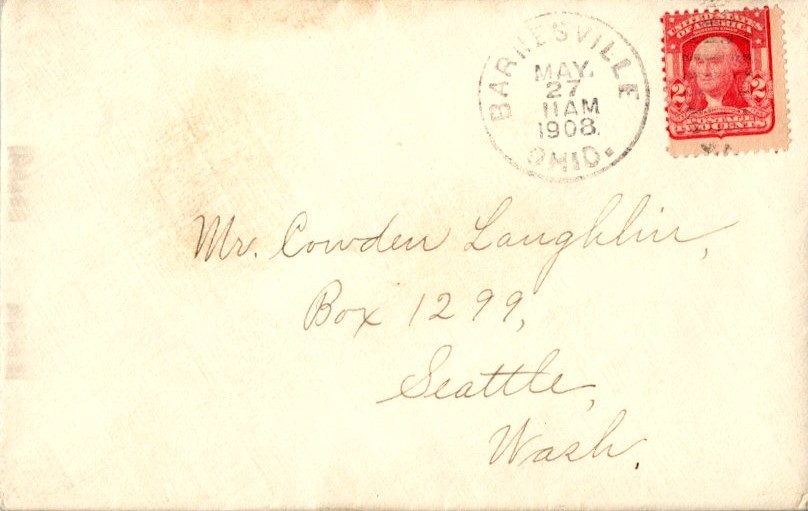 BARNESVILLE
MAY.
27
11AM
1908.
OHIO.
UNITED STATES
OF AMERICA
2 2
POSTAGE
TWO CENTS
Mr. Cowden Laughlin,
Box 1299,
Seattle,
Wash.